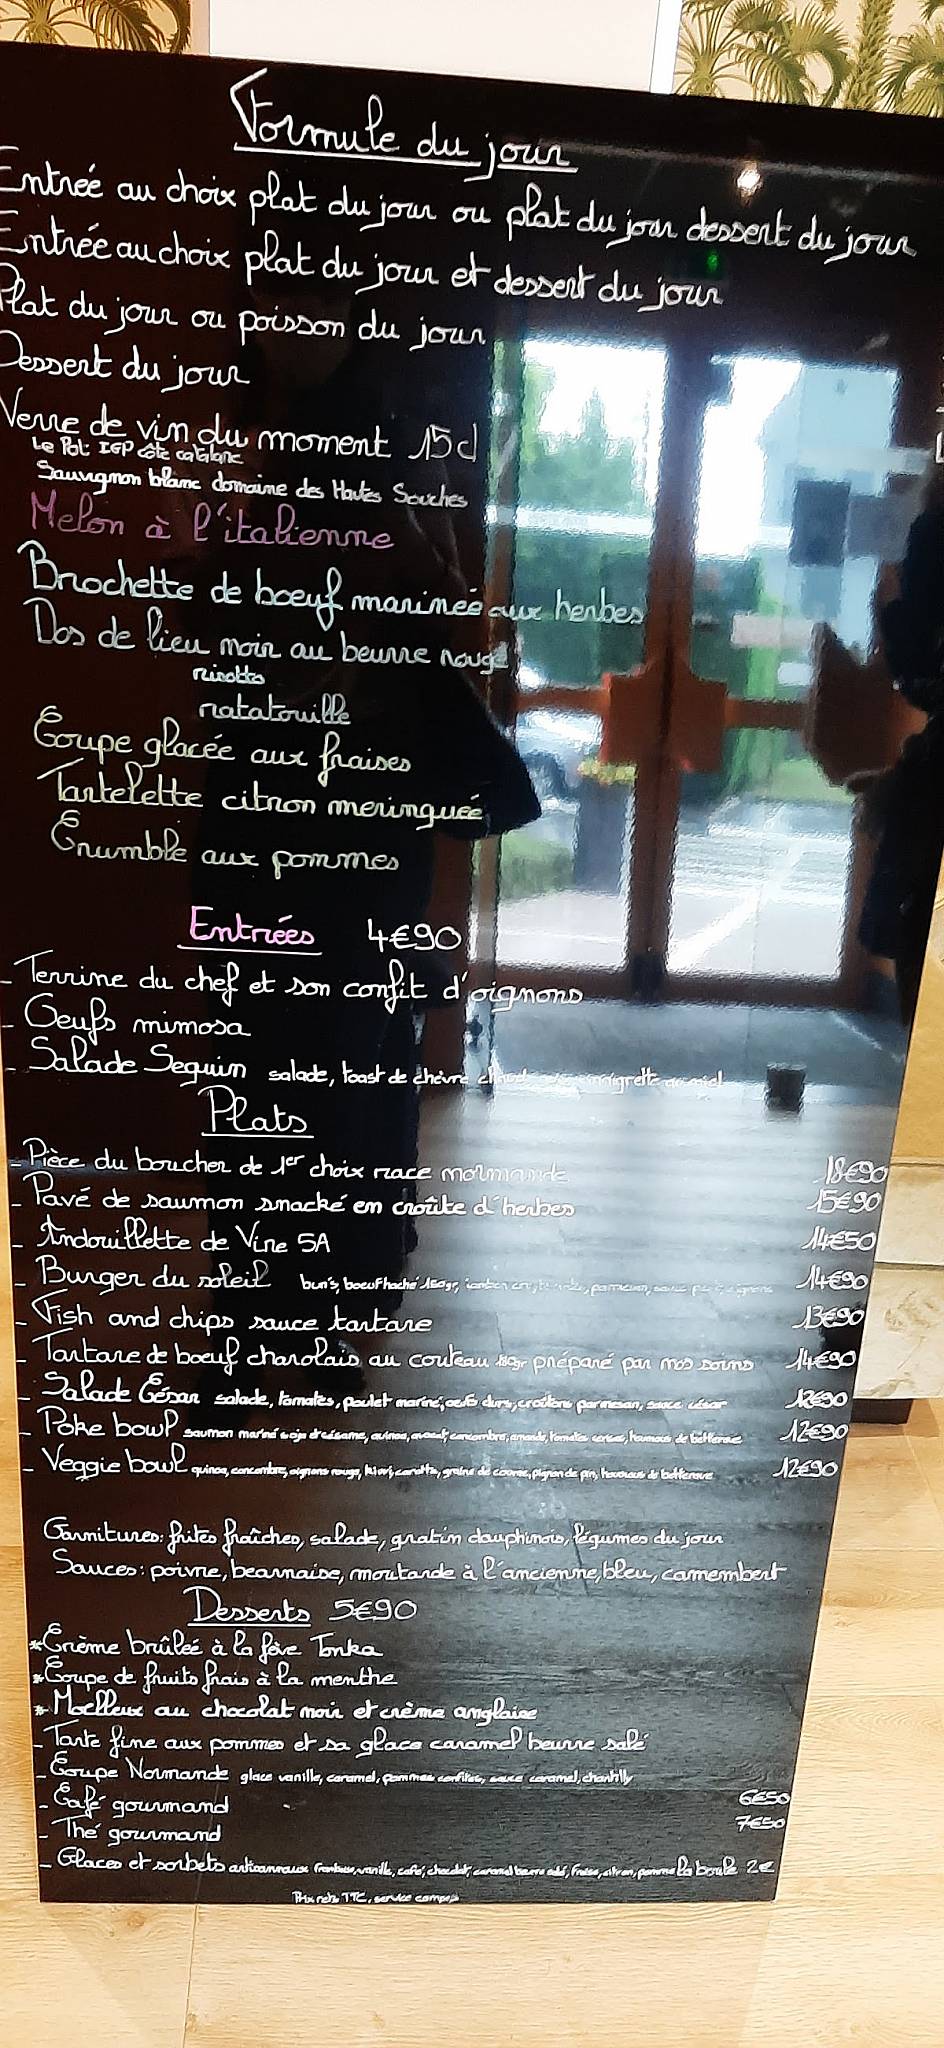 Formule du jour
Entrée au choix plat du jour ou plat du jour dessert du jour
Entrée au choix plat du jour et dessert du jour
Plat du jour ou poisson du jour
Dessert du jour
Verre de vin du moment 15cl
Le Pot: IGP côte catalane
Sauvignon blanc domaine des Hautes Souches
Melon à l'italienne
Brochette de boeuf marinée aux herbes
Dos de lieu noir au beurre rouge
risotto
ratatouille
Coupe glacée aux fraises
Tartelette citron meringuée
Crumble aux pommes
Entrées 4€90
- Terrine du chef et son confit d'oignons
- Oeufs mimosa
- Salade Seguin salade, toast de chèvre chaud vinaigrette au miel
Plats
- Pièce du boucher de 1er choix race normande 18€90
- Pavé de saumon snacké en croûte d'herbes 15€90
- Andouillette de Vire 5A 14€50
- Burger du soleil bun's, boeuf haché 150gr, parmesan, 14€90
- Fish and chips sauce tartare 13€90
- Tartare de boeuf charolais au couteau 180gr préparé par nos soins 14€90
- Salade César salade, tomates, poulet mariné, oeufs durs, croûtons parmesan, sauce césar 12€90
- Poke bowl saumon mariné soja et sésame, quinoa, avocat, concombre, amande, tomates cerises, houmous de betterave 12€90
- Veggie bowl quinoa, concombre, oignons rouge, kiwi, carotte, graine de courge, pignon de pin, houmous de betterave 12€90
Garnitures: frites fraîches, salade, gratin dauphinois, légumes du jour
Sauces: poivre, bearnaise, moutarde à l'ancienne, bleu, camembert
Desserts 5€90
* Crème brûleé à la fève Tonka
* Coupe de fruits frais à la menthe
* Moelleux au chocolat noir et crème anglaise
- Tarte fine aux pommes et sa glace caramel beurre salé
- Coupe Normande glace vanille, caramel, pommes confites, sauce caramel, chantilly
- Café gourmand 6€50
- Thé gourmand 7€50
- Glaces et sorbets artisanaux vanille, café, chocolat, caramel beurre salé, fraise, citron, pomme la boule 2€
Prix nets TTC, service compris